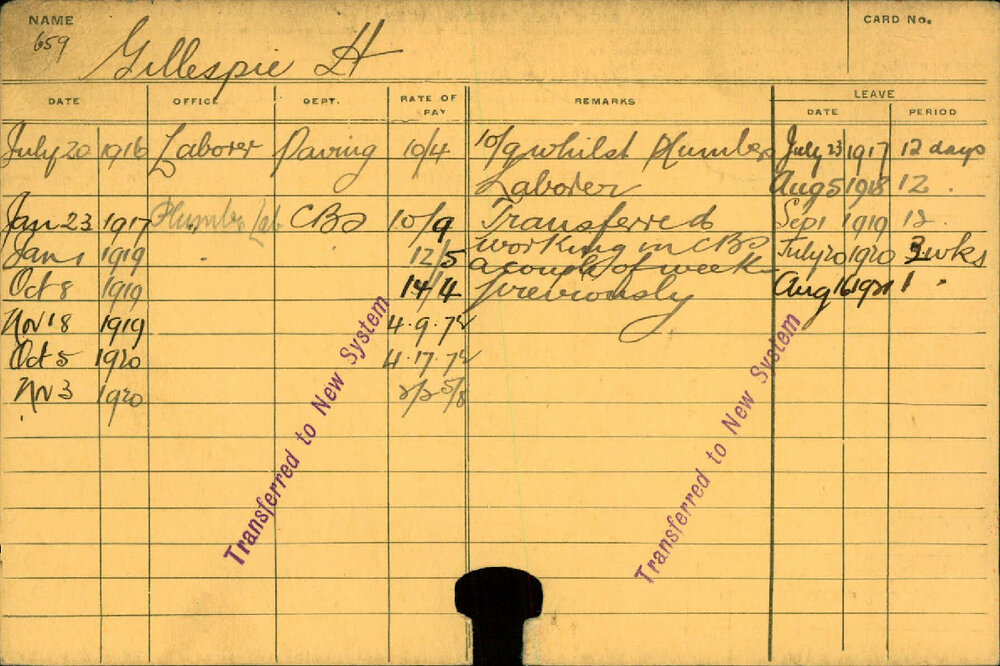 NAME
CARD No.
659
Gillespie H
DATE OFFICE DEPT. RATE OF PAY REMARKS LEAVE
DATE PERIOD
July 20 1916 Laborer Paving 10/4 10/9 whilst Plumbers July 23 1917 12 days
Laborer Aug 5 1918 12 .
Jan 23 1917 Plumbs Lab CBD 10/9 Transferred Sept 1919 12
Jan 1 1919 . 12/5 working in CBD July 20 1920 3 wks
a couple of week
Oct 8 1919 14/4 previously Aug 16 1921 1 .
Nov 18 1919 4.9.7½
Oct 5 1920 4.17.7½
Nov 3 1920
Transferred to New System
Transferred to New System